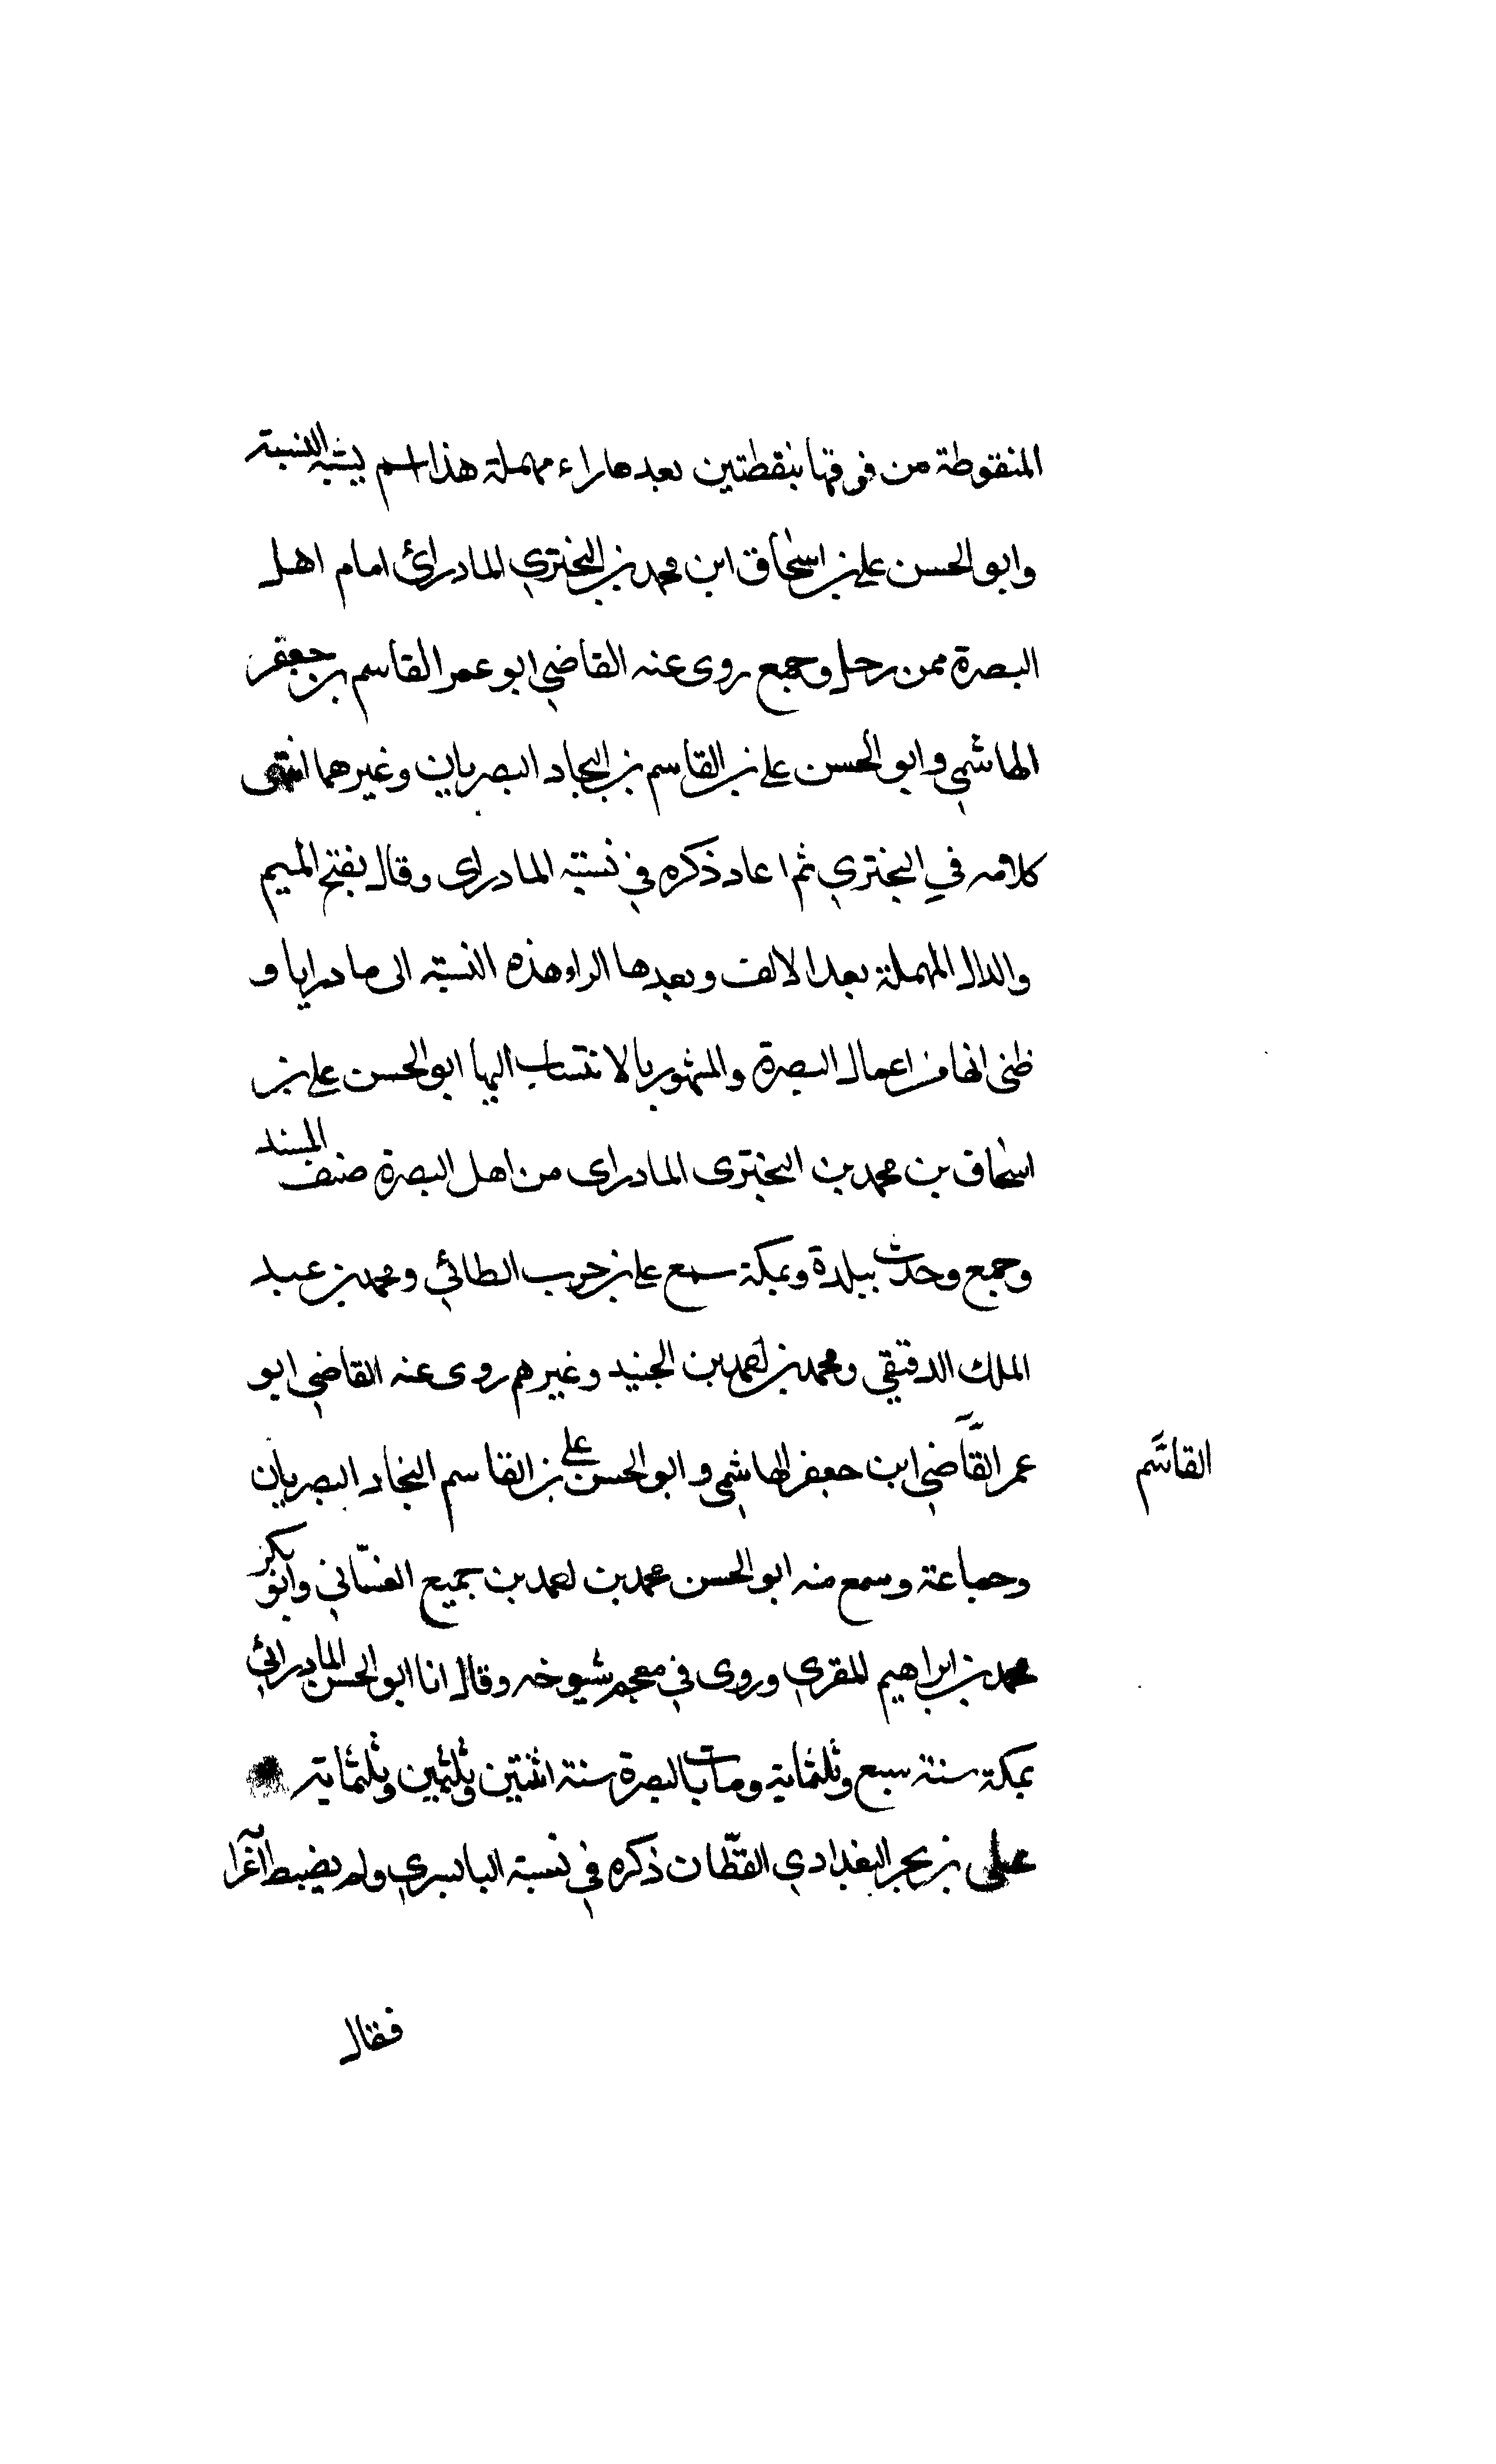 المنقوطة من فوقها بنقطتين بعدها راء مهملة هذا اسم يشبه النسبة
وابو الحسن على بن اسحاق ابن محمد بن البختري المادرائ امام اهل
البصرة ممن رحل وجمع روى عنه القاضي ابو عمر القاسم بن جعفر
الهاشمي وابو الحسن على بن القاسم بن النجاد البصريان وغيرهما انتهى
كلامه في البختري ثم اعاد ذكره في نسبته المادراى وقال بفتح الميم
والدال المهملة بعد الالف وبعدها الراء هذه النسبته الى مادرايا و
ظنى انها من اعمال البصرة والمشهور بالانتساب اليها ابو الحسن على بن
اسحاق بن محمد بن البختري المادراى من اهل البصرة صنف المسند
وجمع وحدث ببلدة وبمكة سمع على بن حرب الطائي ومحمد بن عبد
الملك الدقيقي ومحمد بن احمد بن الجنيد وغيرهم روى عنه القاضي ابو
عمر القاضي ابن جعفر الهاشمي وابو الحسن على بن القاسم النجاد البصريان
القاسم
وجماعة وسمع منه ابو الحسن محمد بن احمد بن جميع الغسّاني وابو بكر
محمد بن ابراهيم المقري وروى في معجم شيوخه وقال انا ابو الحسن المادرائي
بمكة سنة سبع وثلثماية ومات بالبصرة سنة اثنتين وثلثين وثلثماية
على بن بحر البغدادي القطّان ذكره في نسبة البابسيري ولم يضبط
فقال